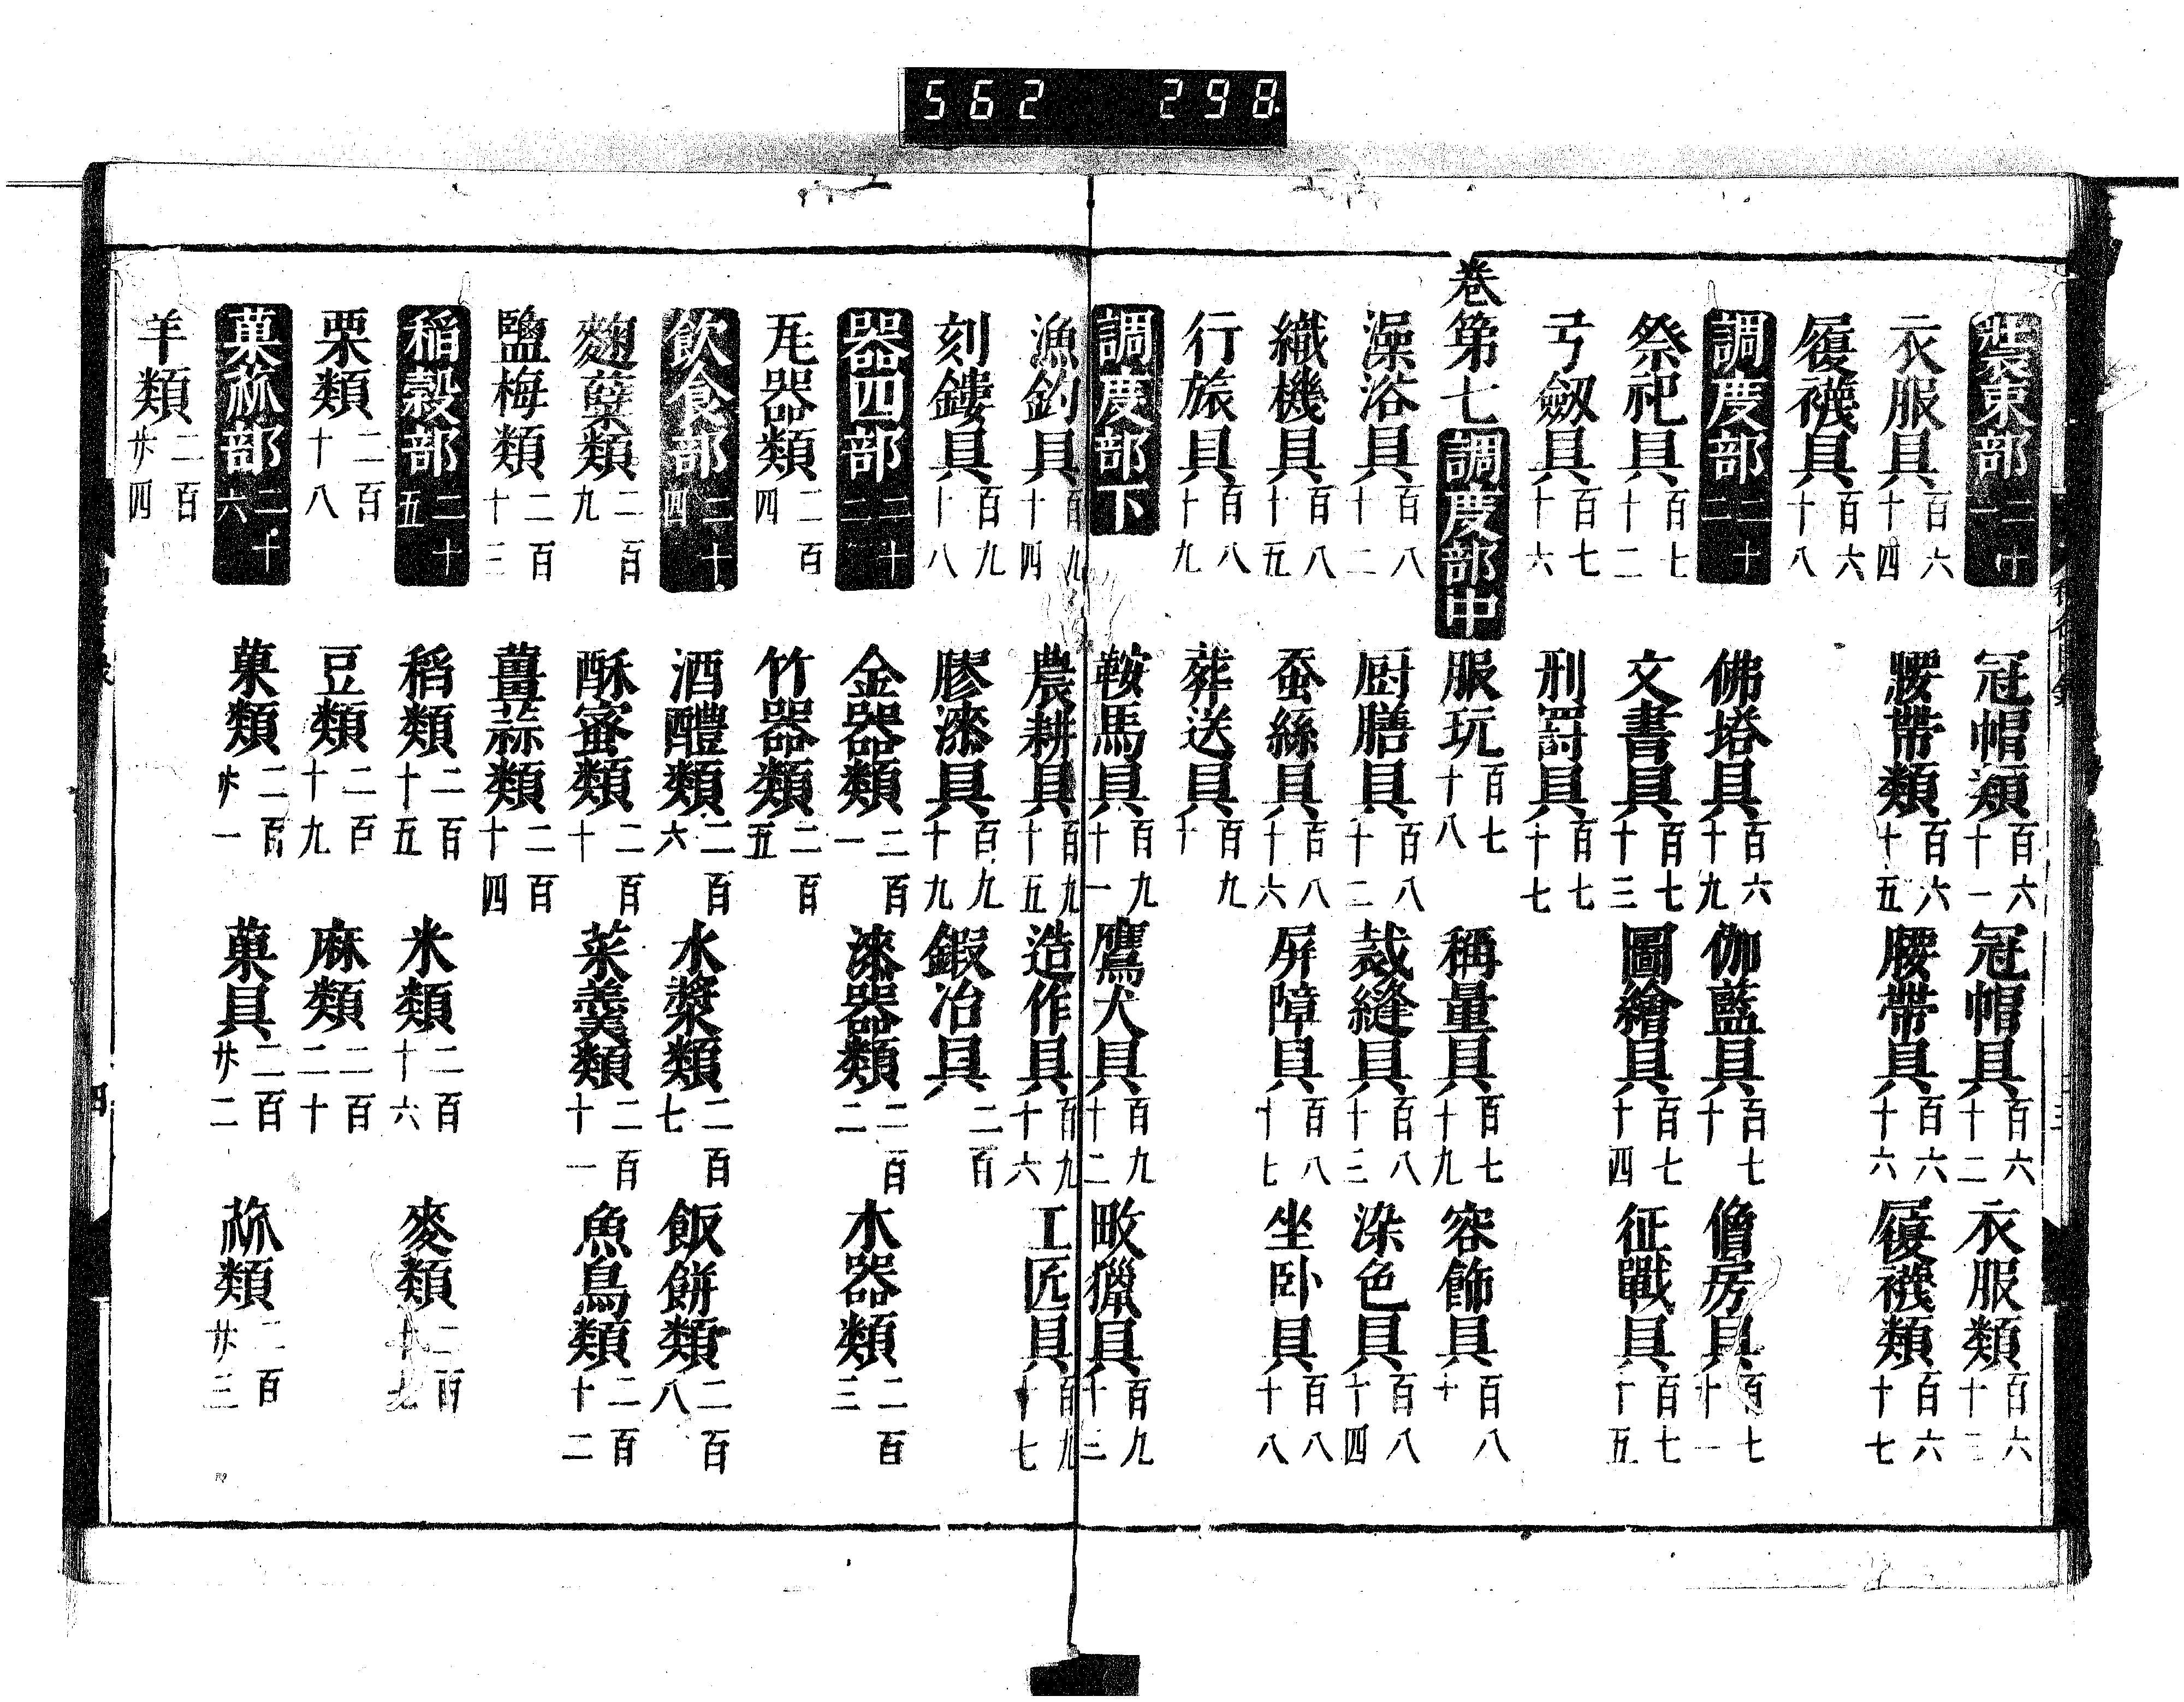 562 298
裝束部二十一 冠帽類百六十一 冠帽具百六十二 衣服類百六十三
衣服具百六十四 腰帶類百六十五 腰帶具百六十六 履襪類百六十七
履襪具百六十八
調度部二十二 佛塔具百六十九 伽藍具百七十 僧房具百七十一
祭祀具百七十二 文書具百七十三 圖繪具百七十四 征戰具百七十五
弓劔具百七十六 刑罸具百七十七
卷第七 調度部中 服玩百七十八 稱量具百七十九 容飾具百八十
澡浴具百八十一 厨膳具百八十二 裁縫具百八十三 染色具百八十四
織機具百八十五 蚕絲具百八十六 屏障具百八十七 坐卧具百八十八
行旅具百八十九 葬送具百九十
調度部下 鞍馬具百九十一 鷹犬具百九十二 畋獵具百九十三
漁釣具百九十四 農耕具百九十五 造作具百九十六 工匠具百九十七
刻鏤具百九十八 膠漆具百九十九 鍜冶具二百
器皿部二十三 金器類二百一 漆器類二百二 木器類二百三
瓦器類二百四 竹器類二百五
飲食部二十四 酒醴類二百六 水漿類二百七 飯餅類二百八
麴糵類二百九 酥蜜類二百十 菜羹類二百十一 魚鳥類二百十二
鹽梅類二百十三 薑蒜類二百十四
稲穀部二十五 稻類二百十五 米類二百十六 麥類二百十七
粟類二百十八 豆類二百十九 麻類二百二十
菓蓏部二十六 菓類二百廿一 菓具二百廿二 蓏類二百廿三
芋類二百廿四
四